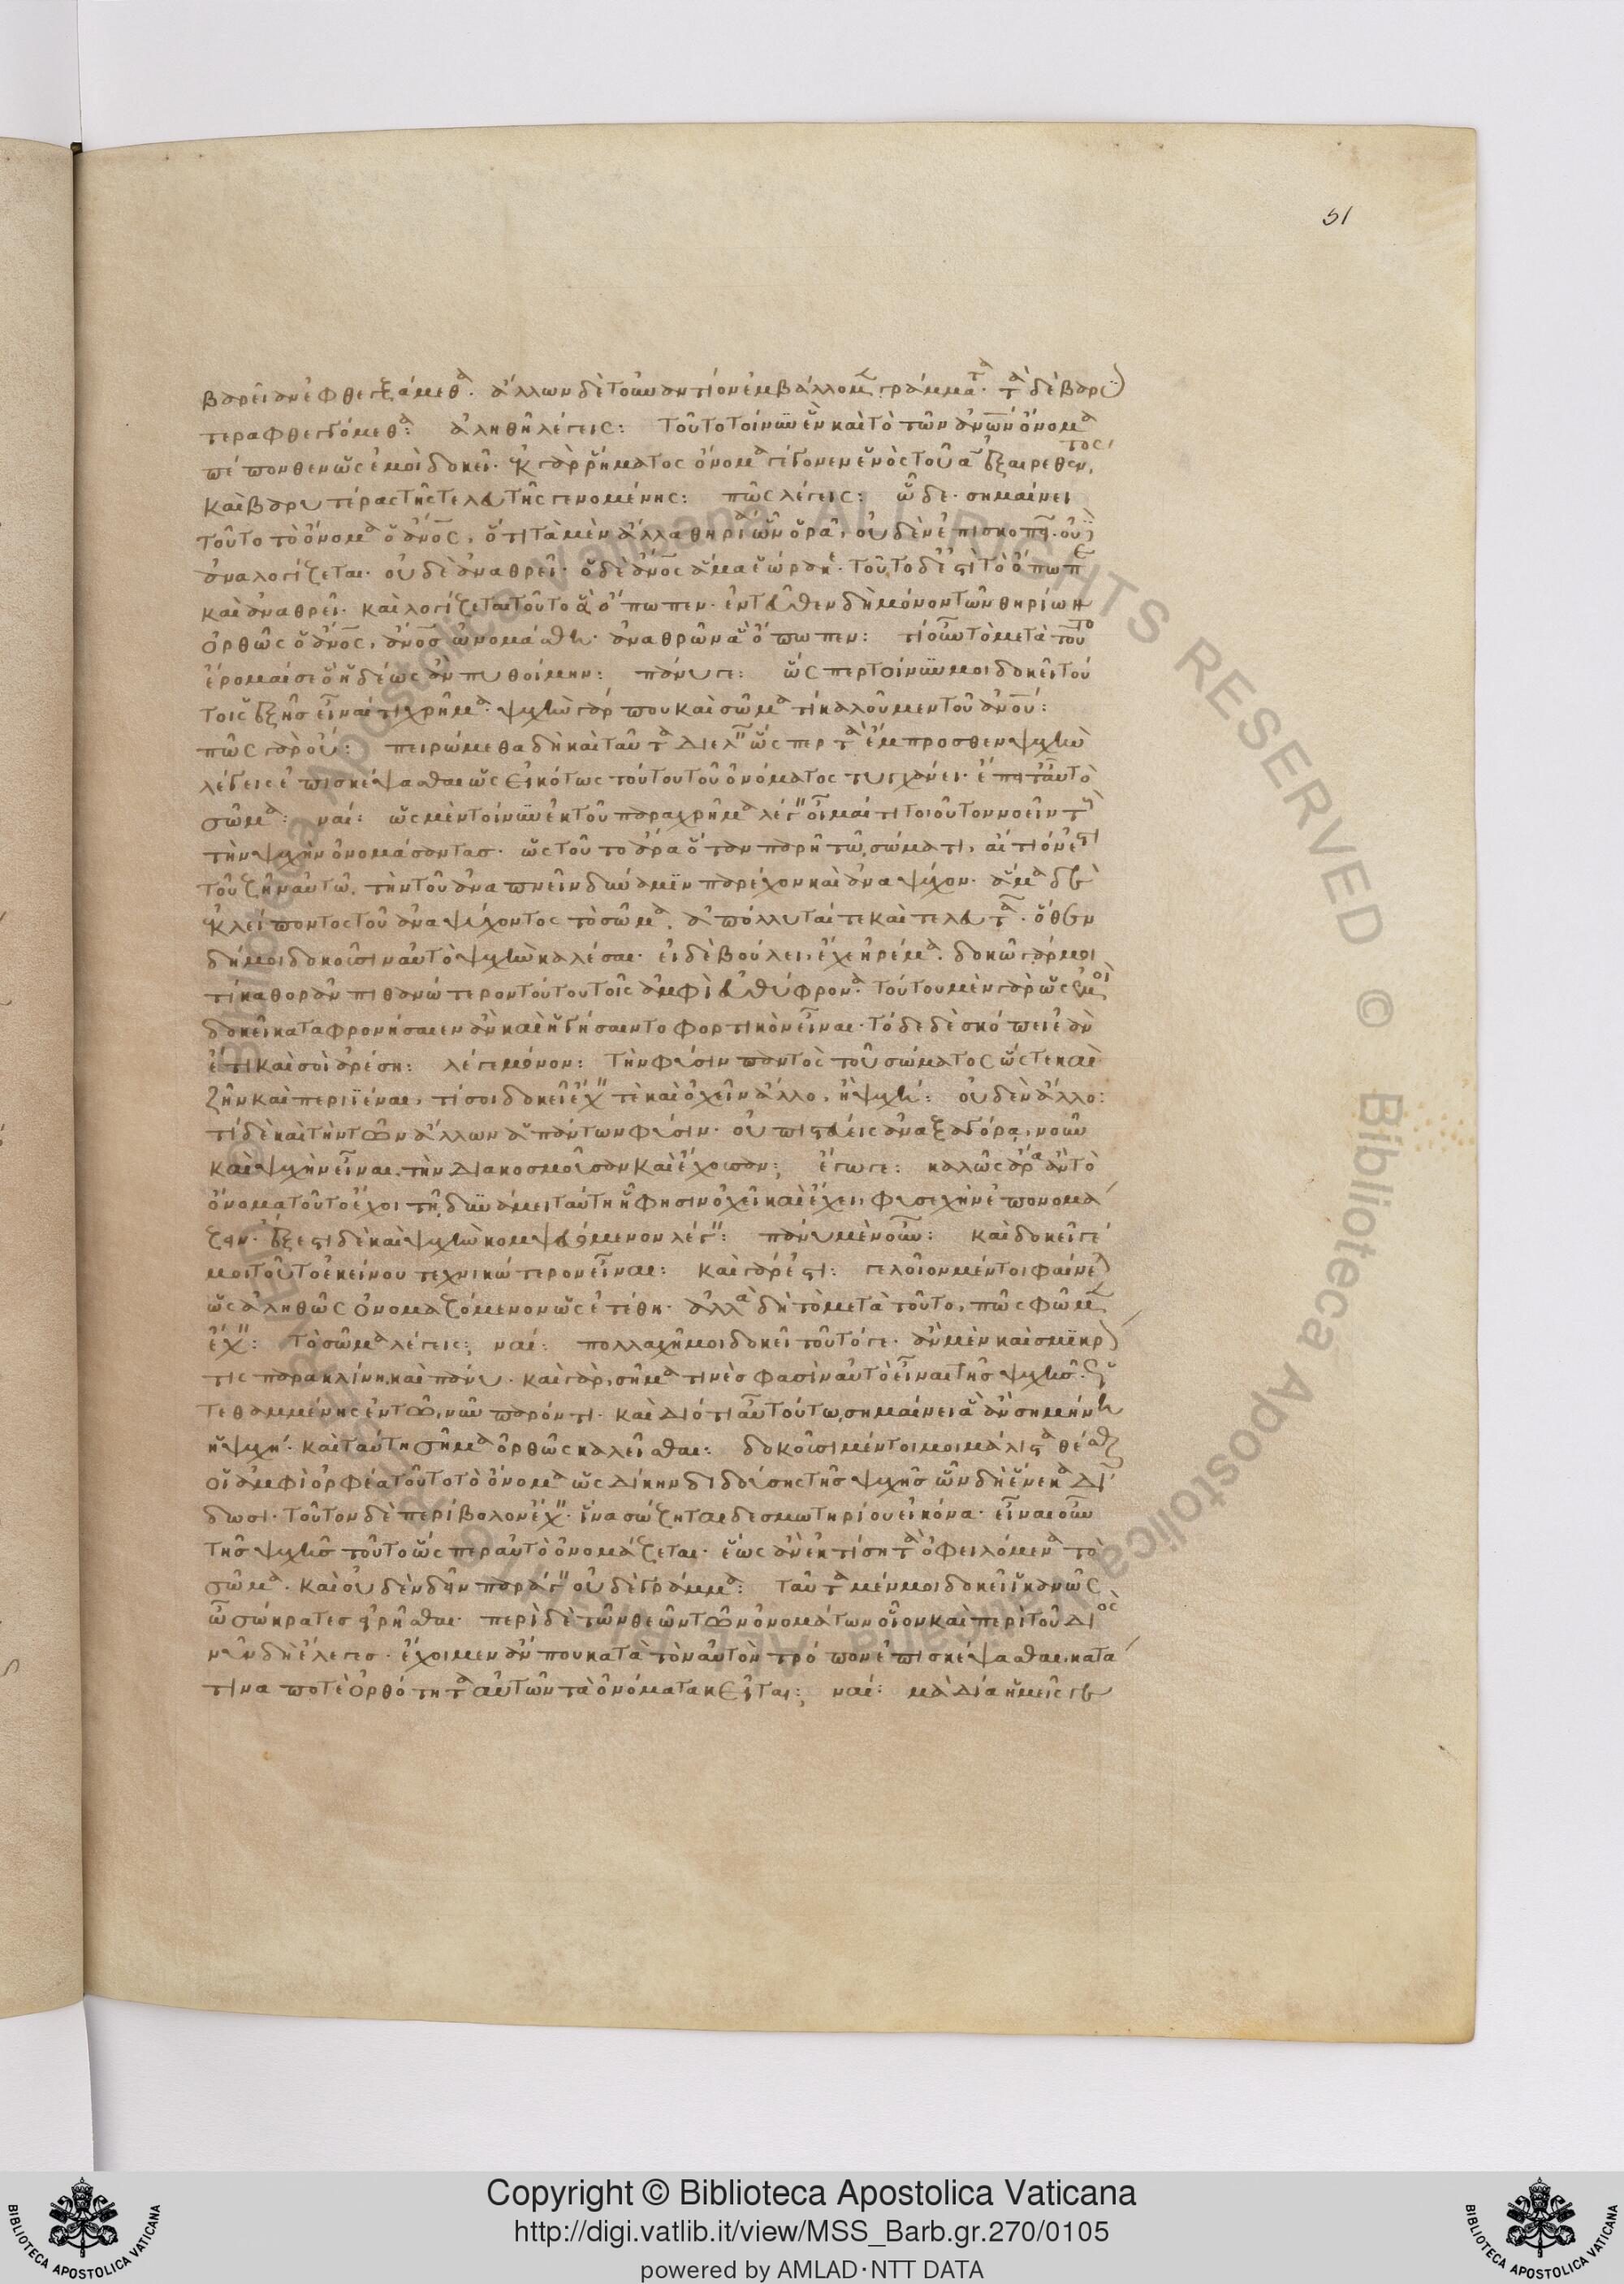 51
βαρεῖαν ἐφθεγξάμεθα. ἄλλων δὲ τοὐναντίον ἐμβάλλομεν γράμματα. τὰ δὲ βαρύ
τερα φθεγγόμεθα: ἀληθῆ λέγεις: τοῦτο τοίνυν ἓν καὶ τὸ τῶν ἀνων ὄνομα
πέπονθεν ὡς ἐμοὶ δοκεῖ. ἐκ γὰρ ῥήματος ὄνομα γέγονεν ἑνὸς τοῦ α ἐξαιρεθέντος,
καὶ βαρυτέρας τῆς τελευτῆς γενομένης: πῶς λέγεις: ὧδε. σημαίνει
τοῦτο τὸ ὄνομα ὁ ἄνος, ὅτι τὰ μὲν ἄλλα θηρία ὧν ὁρᾷ, οὐδὲν ἐπισκοπεῖ. οὐδὲ
ἀναλογίζεται. οὐδὲ ἀναθρεῖ. ὁ δὲ ἄνος ἅμα ἑώρακε. τοῦτο δ' ἐστὶ τὸ ὄπωπε
καὶ ἀναθρεῖ. καὶ λογίζεται τοῦτο ὃ ὄπωπεν. ἐντεῦθεν δὴ μόνον τῶν θηρίων
ὀρθῶς ὁ ἄνος, ἄνος ὠνομάσθη. ἀναθρῶν ἃ ὄπωπεν: τί οὖν τὸ μετὰ τοῦτο
ἔρομαί σε ὃ ἡδέως ἂν πυθοίμην: πάνυ γε: ὥσπερ τοίνυν μοι δοκεῖ τού
τοις ἑξῆς εἶναί τι χρῆμα. ψυχὴν γάρ που καὶ σῶμά τι καλοῦμεν τοῦ ἀνου:
πῶς γὰρ οὔ: πειρώμεθα δὴ καὶ ταῦτα διελεῖν ὥσπερ τὰ ἔμπροσθεν ψυχὴν
λέγεις ἐπισκέψασθαι ὡς εἰκότως τούτου τοῦ ὀνόματος τυγχάνει. ἔπειτ' αὖ τὸ
σῶμα: ναί: ὡς μὲν τοίνυν ἐκ τοῦ παραχρῆμα λέγειν οἶμαί τι τοιοῦτον νοεῖν τοὺς
τὴν ψυχὴν ὀνομάσαντας. ὡς τοῦτο ἄρα ὅταν παρῇ τῷ σώματι, αἴτιόν ἐστι
τοῦ ζῆν αὐτῷ. τὴν τοῦ ἀναπνεῖν δύναμιν παρέχον καὶ ἀναψῦχον. ἅμα δὲ
ἐκλείποντος τοῦ ἀναψύχοντος τὸ σῶμα. ἀπόλλυταί τε καὶ τελευτᾷ. ὅθεν
δή μοι δοκοῦσιν αὐτὸ ψυχὴν καλέσαι. εἰ δὲ βούλει, ἔχε ἠρέμα. δοκῶ γάρ μοι
τι καθορᾶν πιθανώτερον τούτου τοῖς ἀμφὶ εὐθύφρονα. τούτου μὲν γὰρ ὡς ἐμοὶ
δοκεῖ καταφρονήσαιεν ἂν καὶ ἡγήσαιντο φορτικὸν εἶναι. τόδε δὲ σκόπει ἐὰν
ἔτι καὶ σοὶ ἀρέσῃ: λέγε μόνον: τὴν φύσιν παντὸς τοῦ σώματος ὥστε καὶ
ζῆν καὶ περιϊέναι, τί σοι δοκεῖ ἔχειν τε καὶ ὀχεῖν ἄλλο, ἢ ψυχή: οὐδὲν ἄλλο:
τί δὲ καὶ τὴν τῶν ἄλλων ἁπάντων φύσιν. οὐ πιστεύεις ἀναξαγόρᾳ, νοῦν
καὶ ψυχὴν εἶναι τὴν διακοσμοῦσαν καὶ ἔχουσαν; ἔγωγε: καλῶς ἄρα ἂν τὸ
ὄνομα τοῦτο ἔχοι τῇ δυνάμει ταύτῃ ἣ φησιν ὀχεῖ καὶ ἔχει, φυσέχην ἐπονομά
ζειν. ἔξεστι δὲ καὶ ψυχὴν κομψευόμενον λέγειν: πάνυ μὲν οὖν: καὶ δοκεῖ γέ
μοι τοῦτο ἐκείνου τεχνικώτερον εἶναι: καὶ γὰρ ἔστι: γελοῖον μέντοι φαίνεται
ὡς ἀληθῶς ὀνομαζόμενον ὡς ἐτέθη. ἀλλὰ δὴ τὸ μετὰ τοῦτο, πῶς φῶμεν
ἔχειν: τὸ σῶμα λέγεις; ναί: πολλαχῇ μοι δοκεῖ τοῦτό γε. ἂν μὲν καὶ σμικρόν
τις παρακλίνῃ, καὶ πάνυ. καὶ γὰρ, σῆμά τινές φασιν αὐτὸ εἶναι τῆς ψυχῆς. ὡς
τεθαμμένης ἐν τῷ νῦν παρόντι. καὶ διότι αὖ τούτῳ σημαίνει ἃ ἂν σημήνῃ
ἡ ψυχή. καὶ ταύτῃ σῆμα ὀρθῶς καλεῖσθαι: δοκοῦσι μέντοι μοι μάλιστα θέσθαι
οἱ ἀμφὶ ὀρφέα τοῦτο τὸ ὄνομα ὡς δίκην διδούσης τῆς ψυχῆς ὧν δὴ ἕνεκα δί
δωσι. τοῦτον δὲ περίβολον ἔχειν. ἵνα σώζηται δεσμωτηρίου εἰκόνα. εἶναι οὖν
τῆς ψυχῆς τοῦτο ὥσπερ αὐτὸ ὀνομάζεται. ἕως ἂν ἐκτίσῃ τὰ ὀφειλόμενα τὸ
σῶμα. καὶ οὐδὲν δεῖν παράγειν οὐδὲ γράμμα: ταῦτα μέν μοι δοκεῖ ἱκανῶς
ὦ σώκρατες εἰρῆσθαι. περὶ δὲ τῶν θεῶν τῶν ὀνομάτων οἷον καὶ περὶ τοῦ διὸς
νῦν δὴ ἔλεγες. ἔχοιμεν ἄν που κατὰ τὸν αὐτὸν τρόπον ἐπισκέψασθαι, κατά
τινα ποτὲ ὀρθότητα αὐτῶν τὰ ὀνόματα κεῖται; ναί: μὰ δία ἡμεῖς γε
Copyright © Biblioteca Apostolica Vaticana
http://digi.vatlib.it/view/MSS_Barb.gr.270/0105
powered by AMLAD·NTT DATA